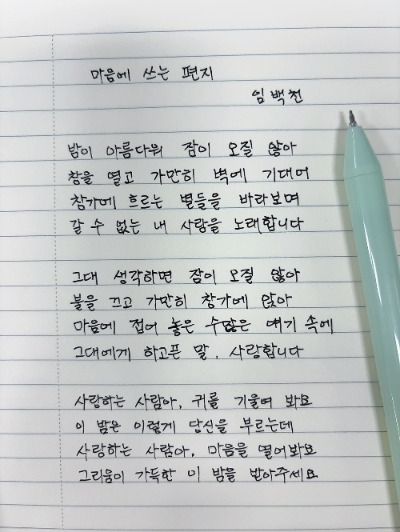 마음에 쓰는 편지
임백천
밤이 아름다워 잠이 오질 않아
창을 열고 가만히 벽에 기대어
창가에 흐르는 별들을 바라보며
갈 수 없는 내 사랑을 노래합니다
그대 생각하면 잠이 오질 않아
불을 끄고 가만히 창가에 앉아
마음에 접어 놓은 수많은 얘기 속에
그대에게 하고픈 말, 사랑합니다
사랑하는 사람아, 귀를 기울여 봐요
이 밤은 이렇게 당신을 부르는데
사랑하는 사람아, 마음을 열어봐요
그리움이 가득한 이 밤을 받아주세요